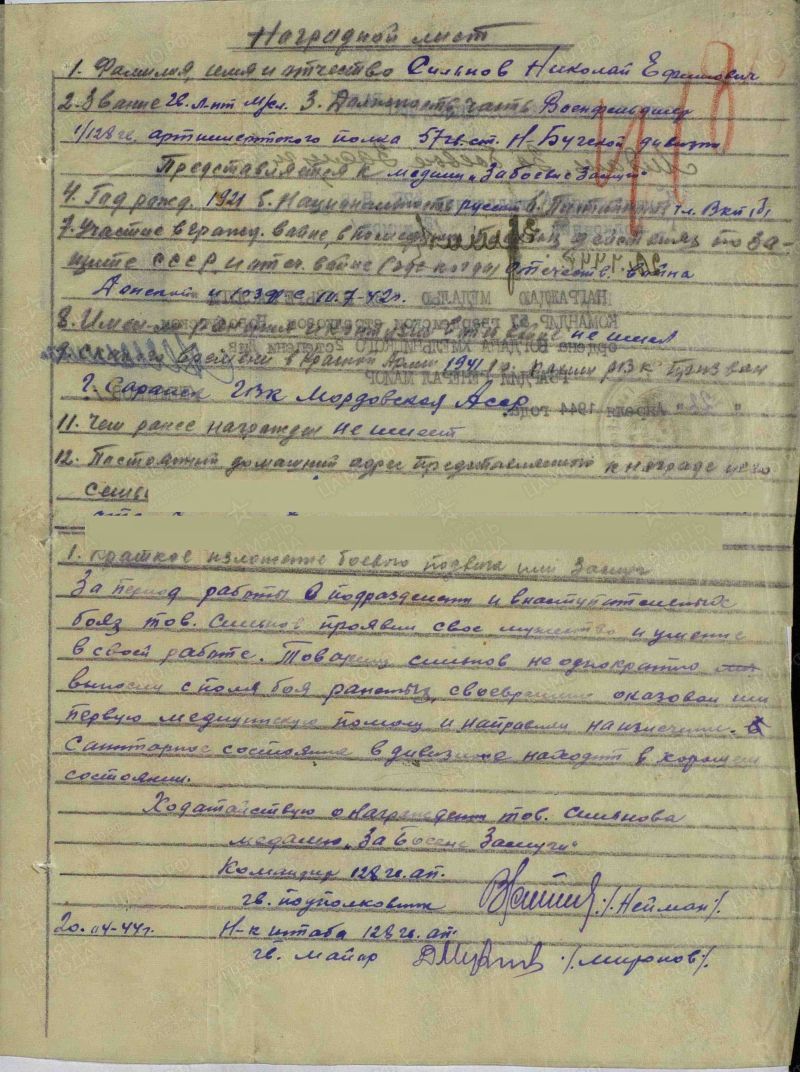 Наградной лист
1. Фамилия, имя и отчество Сильнов Николай Ефимович
2. Звание гв. л-нт м/сл. 3. Должность, часть Военфельдшер
1/128 гв. артиллерийского полка 57 гв. ст. Н-Бугской дивизии
Представляется к медали „За боевые Заслуги"
4. Год рожд. 1921 5. Национальность русский 6. Партийность чл. ВКП(б)
7. Участие в гражд. войне, в последующих боевых действиях по за-
щите СССР и отеч. войне (где когда) отечеств. война
Донской и ЮЗФ с 10.7-42г.
8. Имеет ли ранения и контузии в отеч. войне не имел
9. С какого времени в Красной Армии 1941 г. 10. Каким РВК призван
г. Саранск ГВК Мордовская АССР
11. Чем ранее награжден не имеет
12. Постоянный домашний адрес представляемого к награде и его
семьи
1. Краткое изложение боевого подвига или Заслуг
За период работы в подразделении и в наступательных
боях тов. Сильнов проявил свое мужество и умение
в своей работе. Товарищ Сильнов неоднократно
выносил с поля боя раненых, своевременно оказовал им
первую медицинскую помощь и направлял на излечение.
Санитарное состояние в дивизионе находит в хорошем
состоянии.
Ходатайствую о награждении тов. Сильнова
медалью „За Боевые Заслуги"
Командир 128 гв. ап.
гв. подполковник /Нейман/.
20.04-44г. Н-к штаба 128 гв. ап.
гв. майор /Миронов/.
НАГРАЖДЕН МЕДАЛЬЮ
КОМАНДИР 57 гвардейской стрелковой Новобугской
ордена БОГДАНА ХМЕЛЬНИЦКОГО 2 степени див.
ГВАРДИИ ГЕНЕРАЛ МАЙОР
Апреля 1944 года.